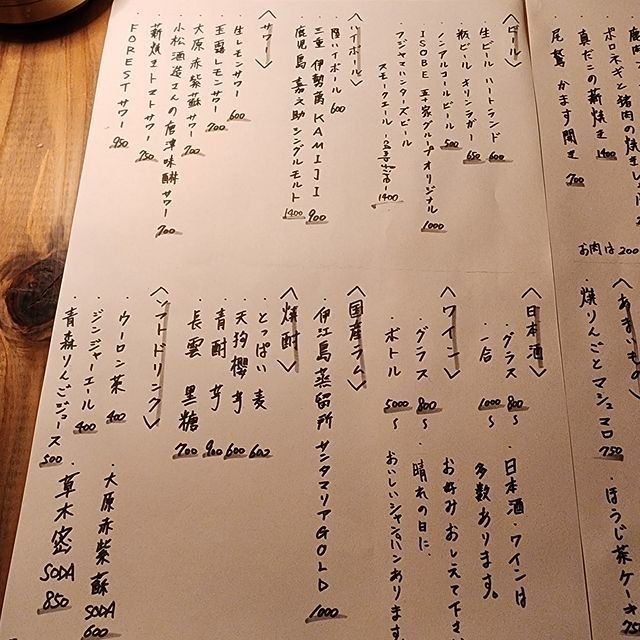 鹿肉
ポロネギと猪肉の焼き
真だこの薪焼き 1400
尾鷲 かます開き 700
お肉は 200
〈ビール〉
・生ビール ハートランド 600
・瓶ビール キリンラガー 650
・ノンアルコールビール 500
・ISOBE 五十家グループオリジナル 1000
・フジヤマハンターズビール
スモークエール 1400
〈ハイボール〉
・陸ハイボール 600
・三重 伊勢萬 KAMIJI 900
・鹿児島 嘉之助シングルモルト 1400
〈サワー〉
・生レモンサワー 600
・玉露レモンサワー 700
・大原赤紫蘇サワー 700
・小松酒造さんの唐津味醂サワー 700
・薪焼きトマトサワー 750
・FORESTサワー 950
〈あまいもの〉
・焼りんごとマシュマロ 750
・ほうじ茶ケーキ 750
〈日本酒〉
・グラス 800〜
・一合 1000〜
・日本酒・ワインは
多数あります。
お好みおしえて下さ
〈ワイン〉
・グラス 800〜
・ボトル 5000〜
・晴れの日に、
おいしいシャンパンあります
〈国産ラム〉
・伊江島蒸留所 サンタマリアGOLD 1000
〈焼酎〉
・とっぱい 麦 600
・天狗櫻 芋 600
・青酎 芋 900
・長雲 黒糖 700
〈ソフトドリンク〉
・ウーロン茶 400
・ジンジャーエール 400
・青森りんごジュース 500
・大原赤紫蘇SODA 600
・草木蜜SODA 850